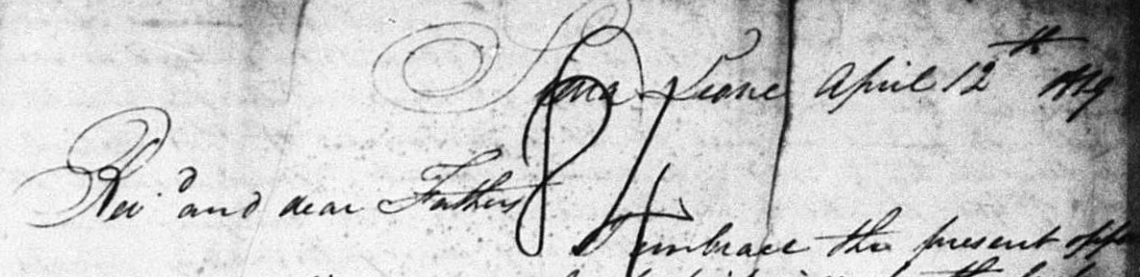 Sierra Leone April 12th 1819
84
Revd and dear Fathers
I embrace the present oppor